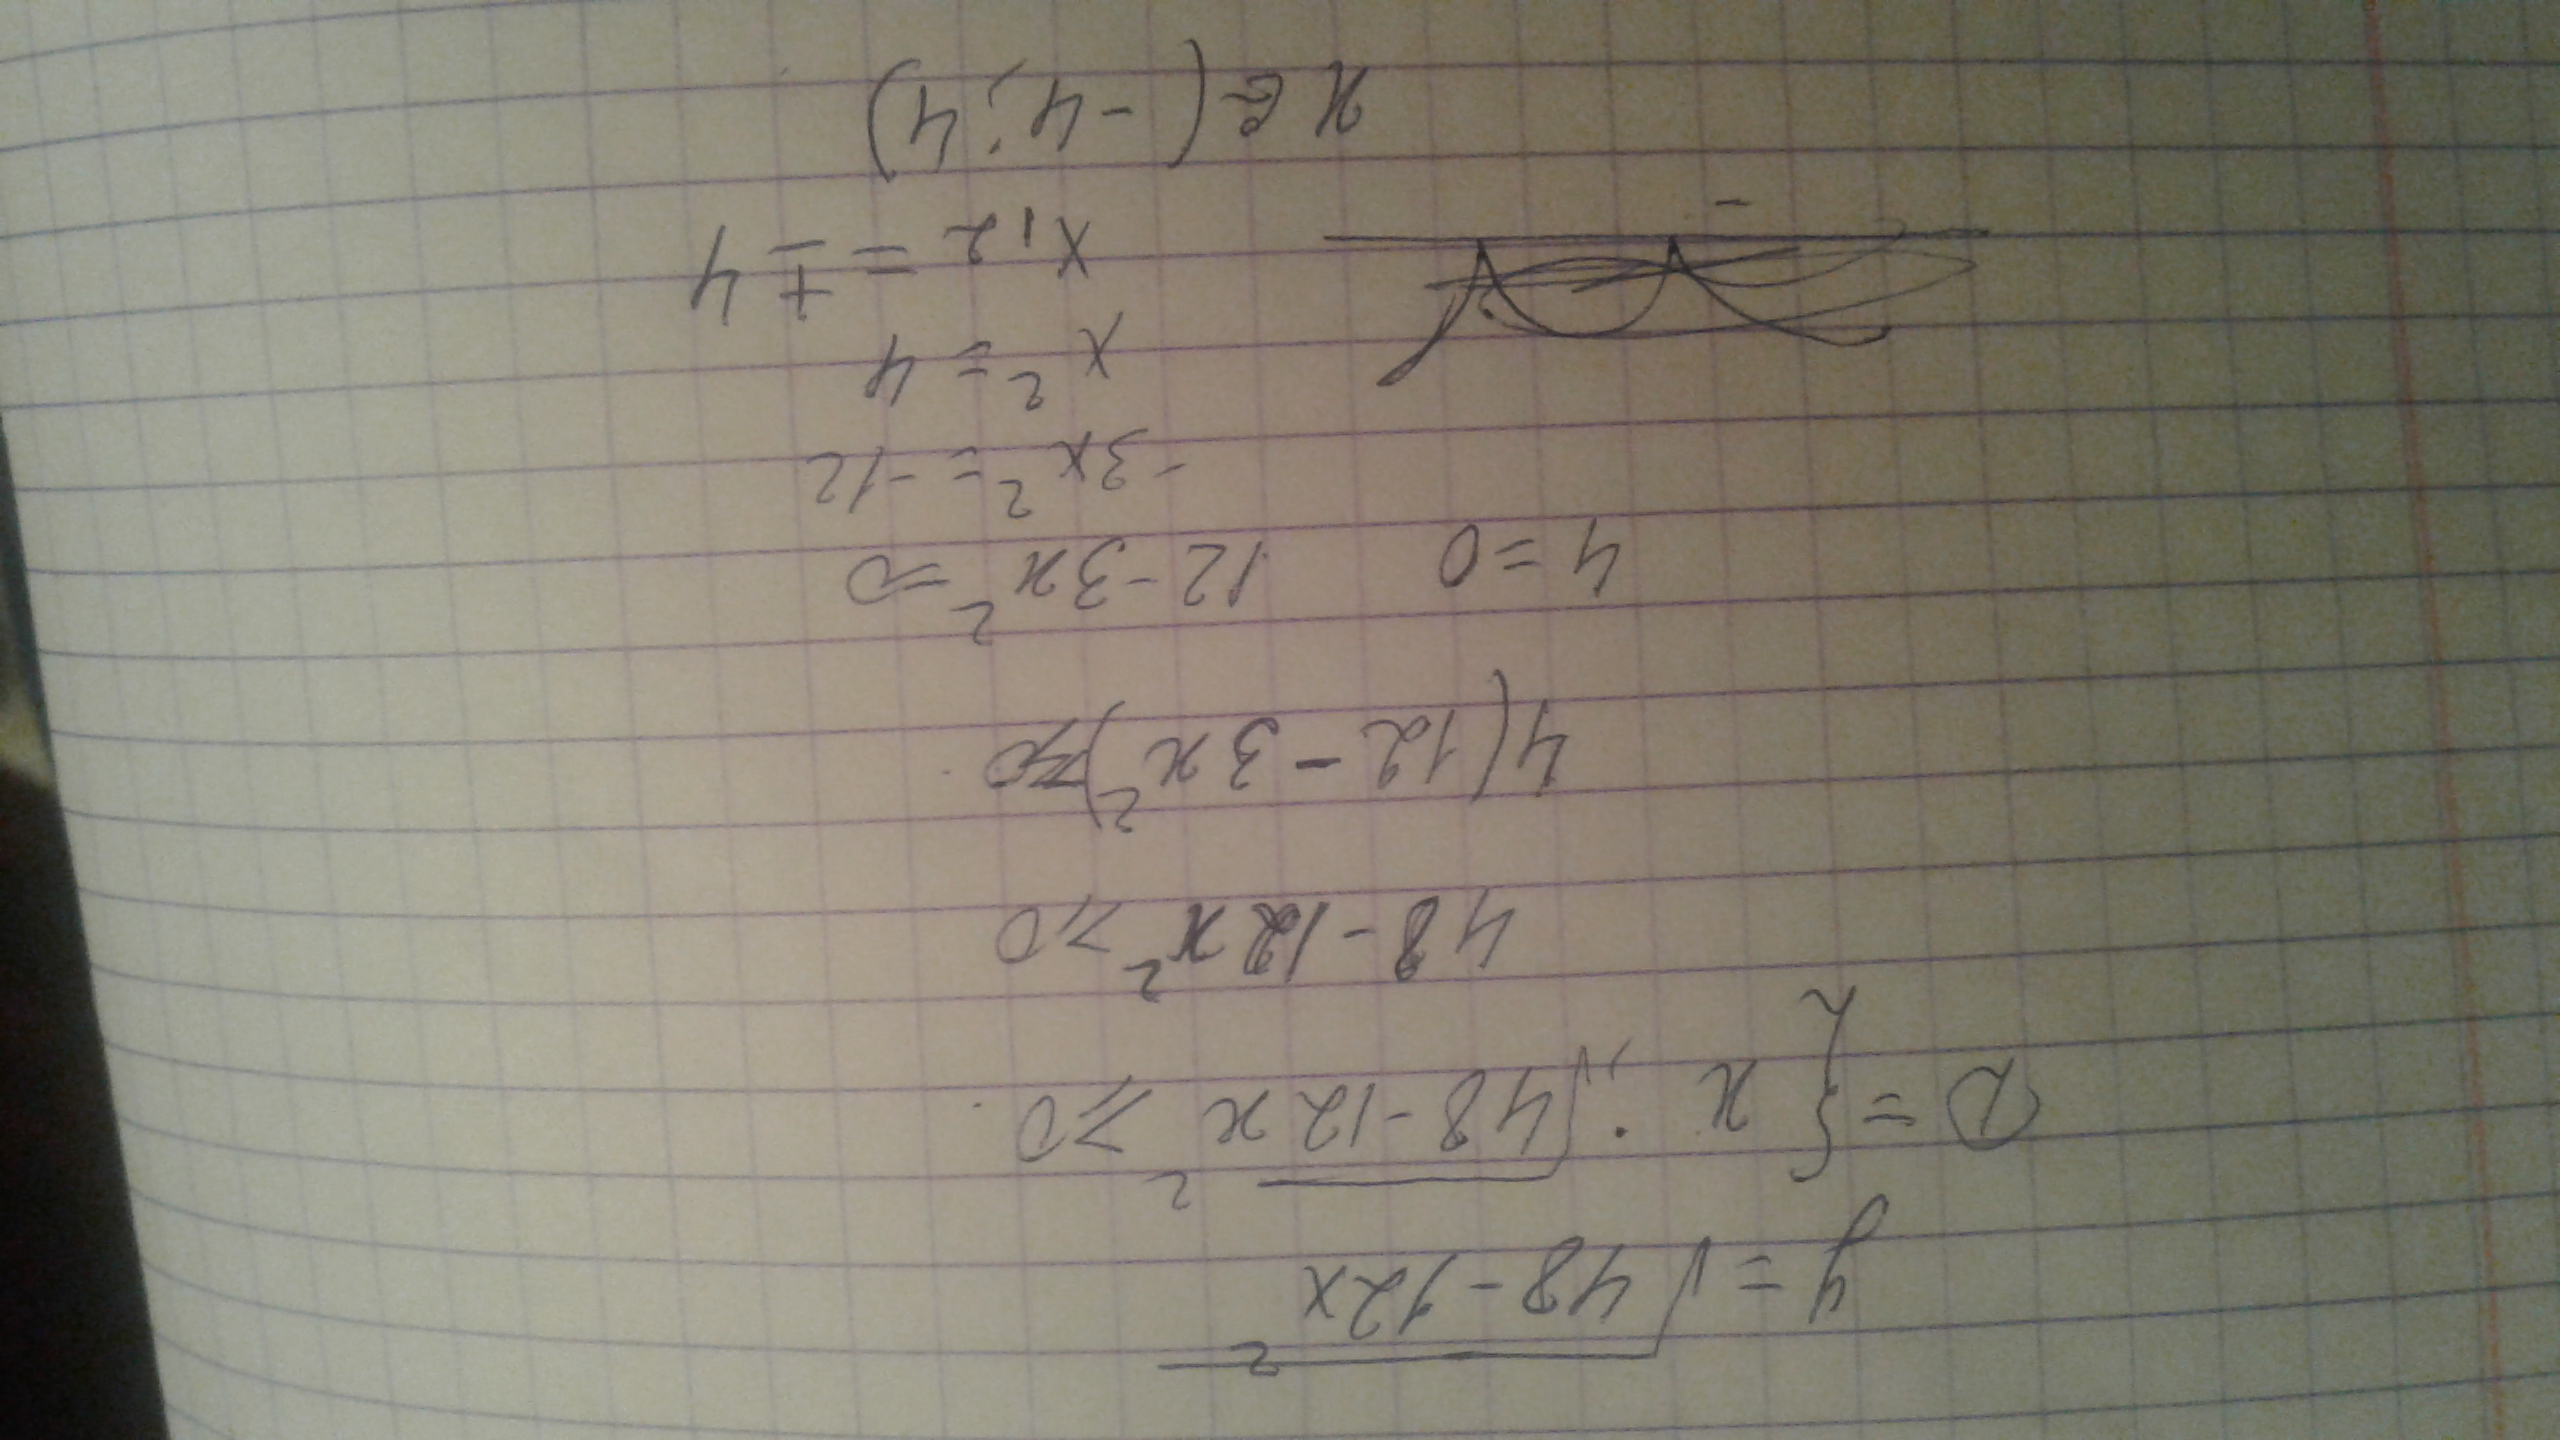 y = √48-12x²
D = {x : √48-12x² ⩾0
48-12x² ⩾0
4(12-3x²)⩾0
4=0 12-3x²=0
-3x²=-12
x²=4
x1,2 = ±4
x∈(-4;4)